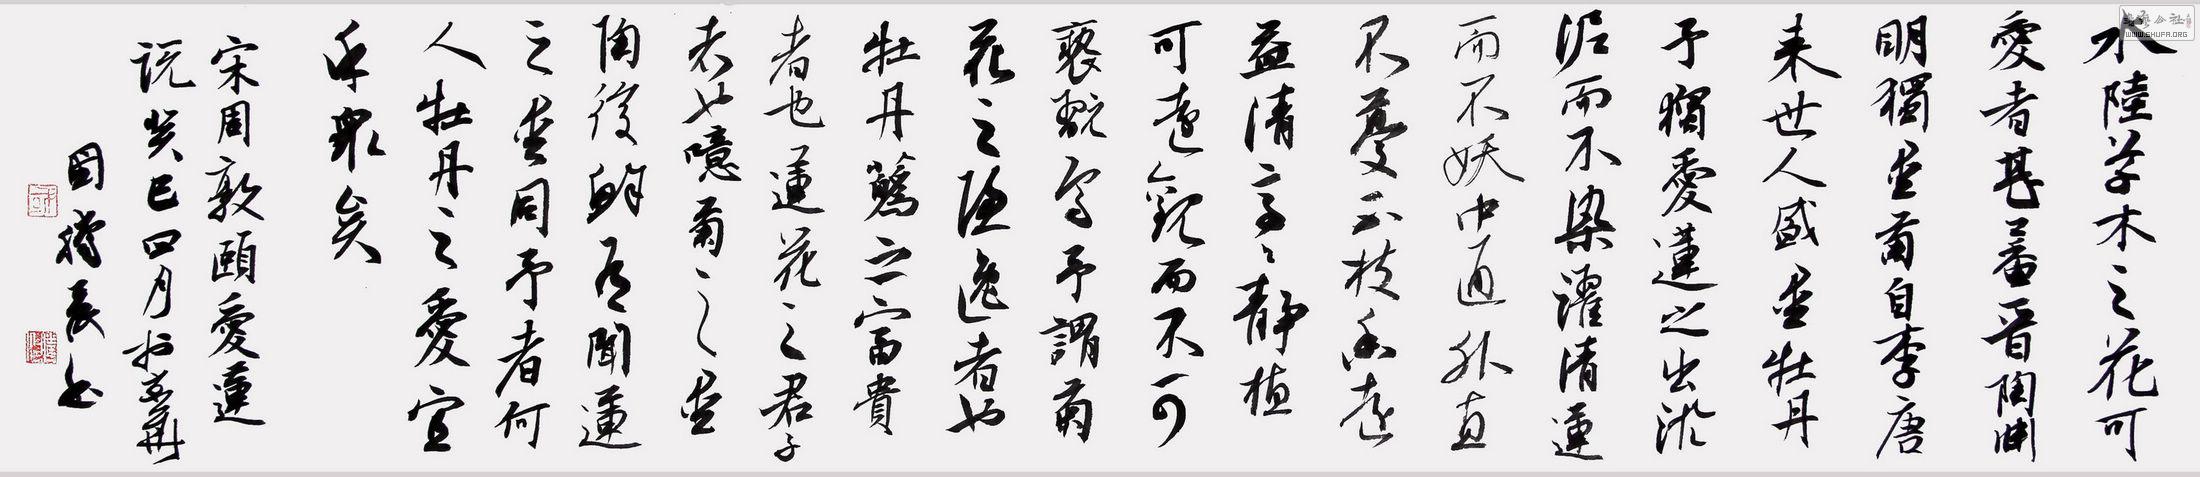 水陸草木之花可
愛者甚蕃晉陶淵
明獨愛菊自李唐
来世人盛愛牡丹
予獨愛蓮之出淤
泥而不染濯清蓮
而不妖中通外直
不蔓不枝香遠
益清亭々静植
可遠觀而不可
褻翫焉予謂菊
花之隱逸者也
牡丹蘤之富貴
者也蓮花之君子
者也噫菊之愛
陶後鮮有聞蓮
之愛同予者何
人牡丹之愛宜
乎眾矣
宋周敦頤愛蓮
説癸巳四月於京華
國
WWW.SHUFA.ORG